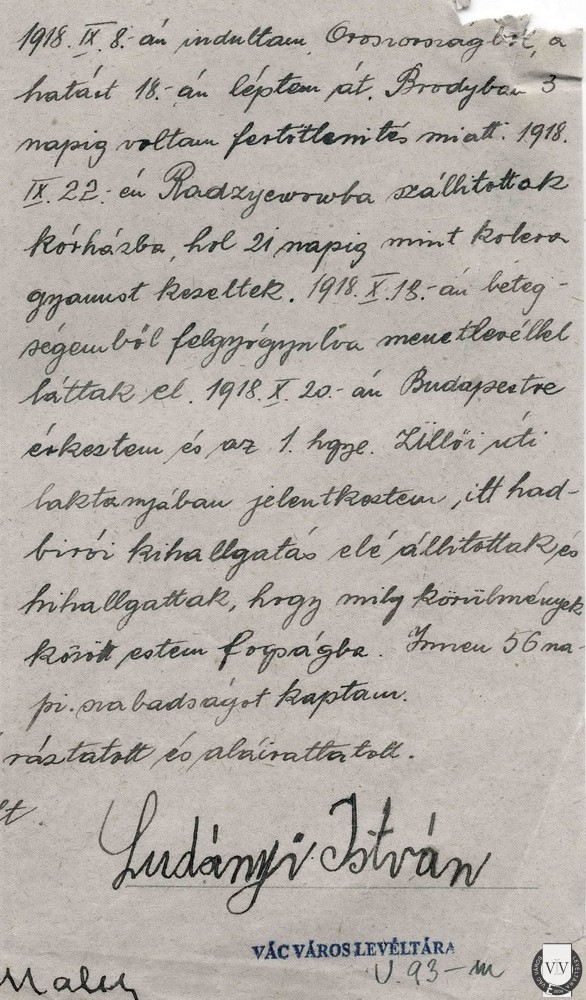 1918. IX. 8.-án indultam Oroszországból, a
határt 18.-án léptem át. Brodyban 3
napig voltam fertőtlenítés miatt. 1918.
IX. 22.-én Radzyewowba szállítottak
kórházba, hol 21 napig mint kolera
gyanust kezeltek. 1918. X. 13.-án beteg-
ségemből felgyógyulva menetlevéllel
láttak el. 1918. X. 20.-án Budapestre
érkeztem és az 1. hgye. Üllői úti
laktanyában jelentkeztem, itt had-
birói kihallgatás elé állitottak és
kihallgattak, hogy mily körülmények
között estem fogságba. Innen 56 na-
pi szabadságot kaptam.
ráztatott és aláirattatott.
lt.
Ludányi István
VÁC VÁROS LEVÉLTÁRA
V. 93-m